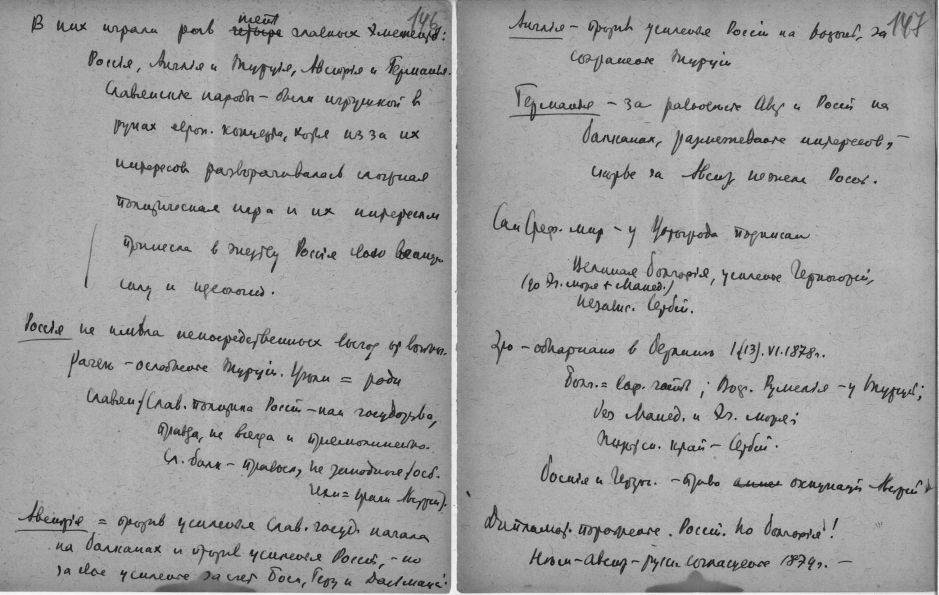 146
В них играли роль пять главных элементов:
Россія, Англія и Турція, Австрія и Германія.
Славянские народы – были игрушкой в
руках европ. концерта, хотя из за их
интересов разворачивалась сложная
политическая игра и их интересам
принесла в жертву Россія свою
силу и
Россія не имѣла непосредственных выгод от войны.
– ослабление Турціи. = ради
славян /Слав. политика Россіи – как государства,
правда, не всегда и
Сл. балк – правосл., не западное /осб.
Австрія = против усиленья Слав. госуд. начала
на балканах и против усиленья Россіи, – но
за свое усиление за счет Босн, Герц и Далмаціи.
147
Англія – против усиленья Россіи на востокѣ, за
сохранение Турціи
Германія – за равновѣсіе Авс и Россіи на
балканах, размежевание интересов,
скорѣе за Австр нежели Росс.
Сан Стеф. мир – у Царьграда подписан
Великая болгарія, усиление Черногоріи,
(до Эг. моря + Макед.)
независ. Сербіи.
Это – обкарнано в берлинѣ 1/(13).VI.1878г.
Болг. = сѣв. часть; Вост. Румелія – у Турціи;
без Макед. и Эг. моря;
край – Сербіи.
Боснія и Герцег. – право оккупаціи Австріи
Дипломат. поражение Россіи по болгаріи!
Нѣм – Австр – русск. соглашение 1879г. –